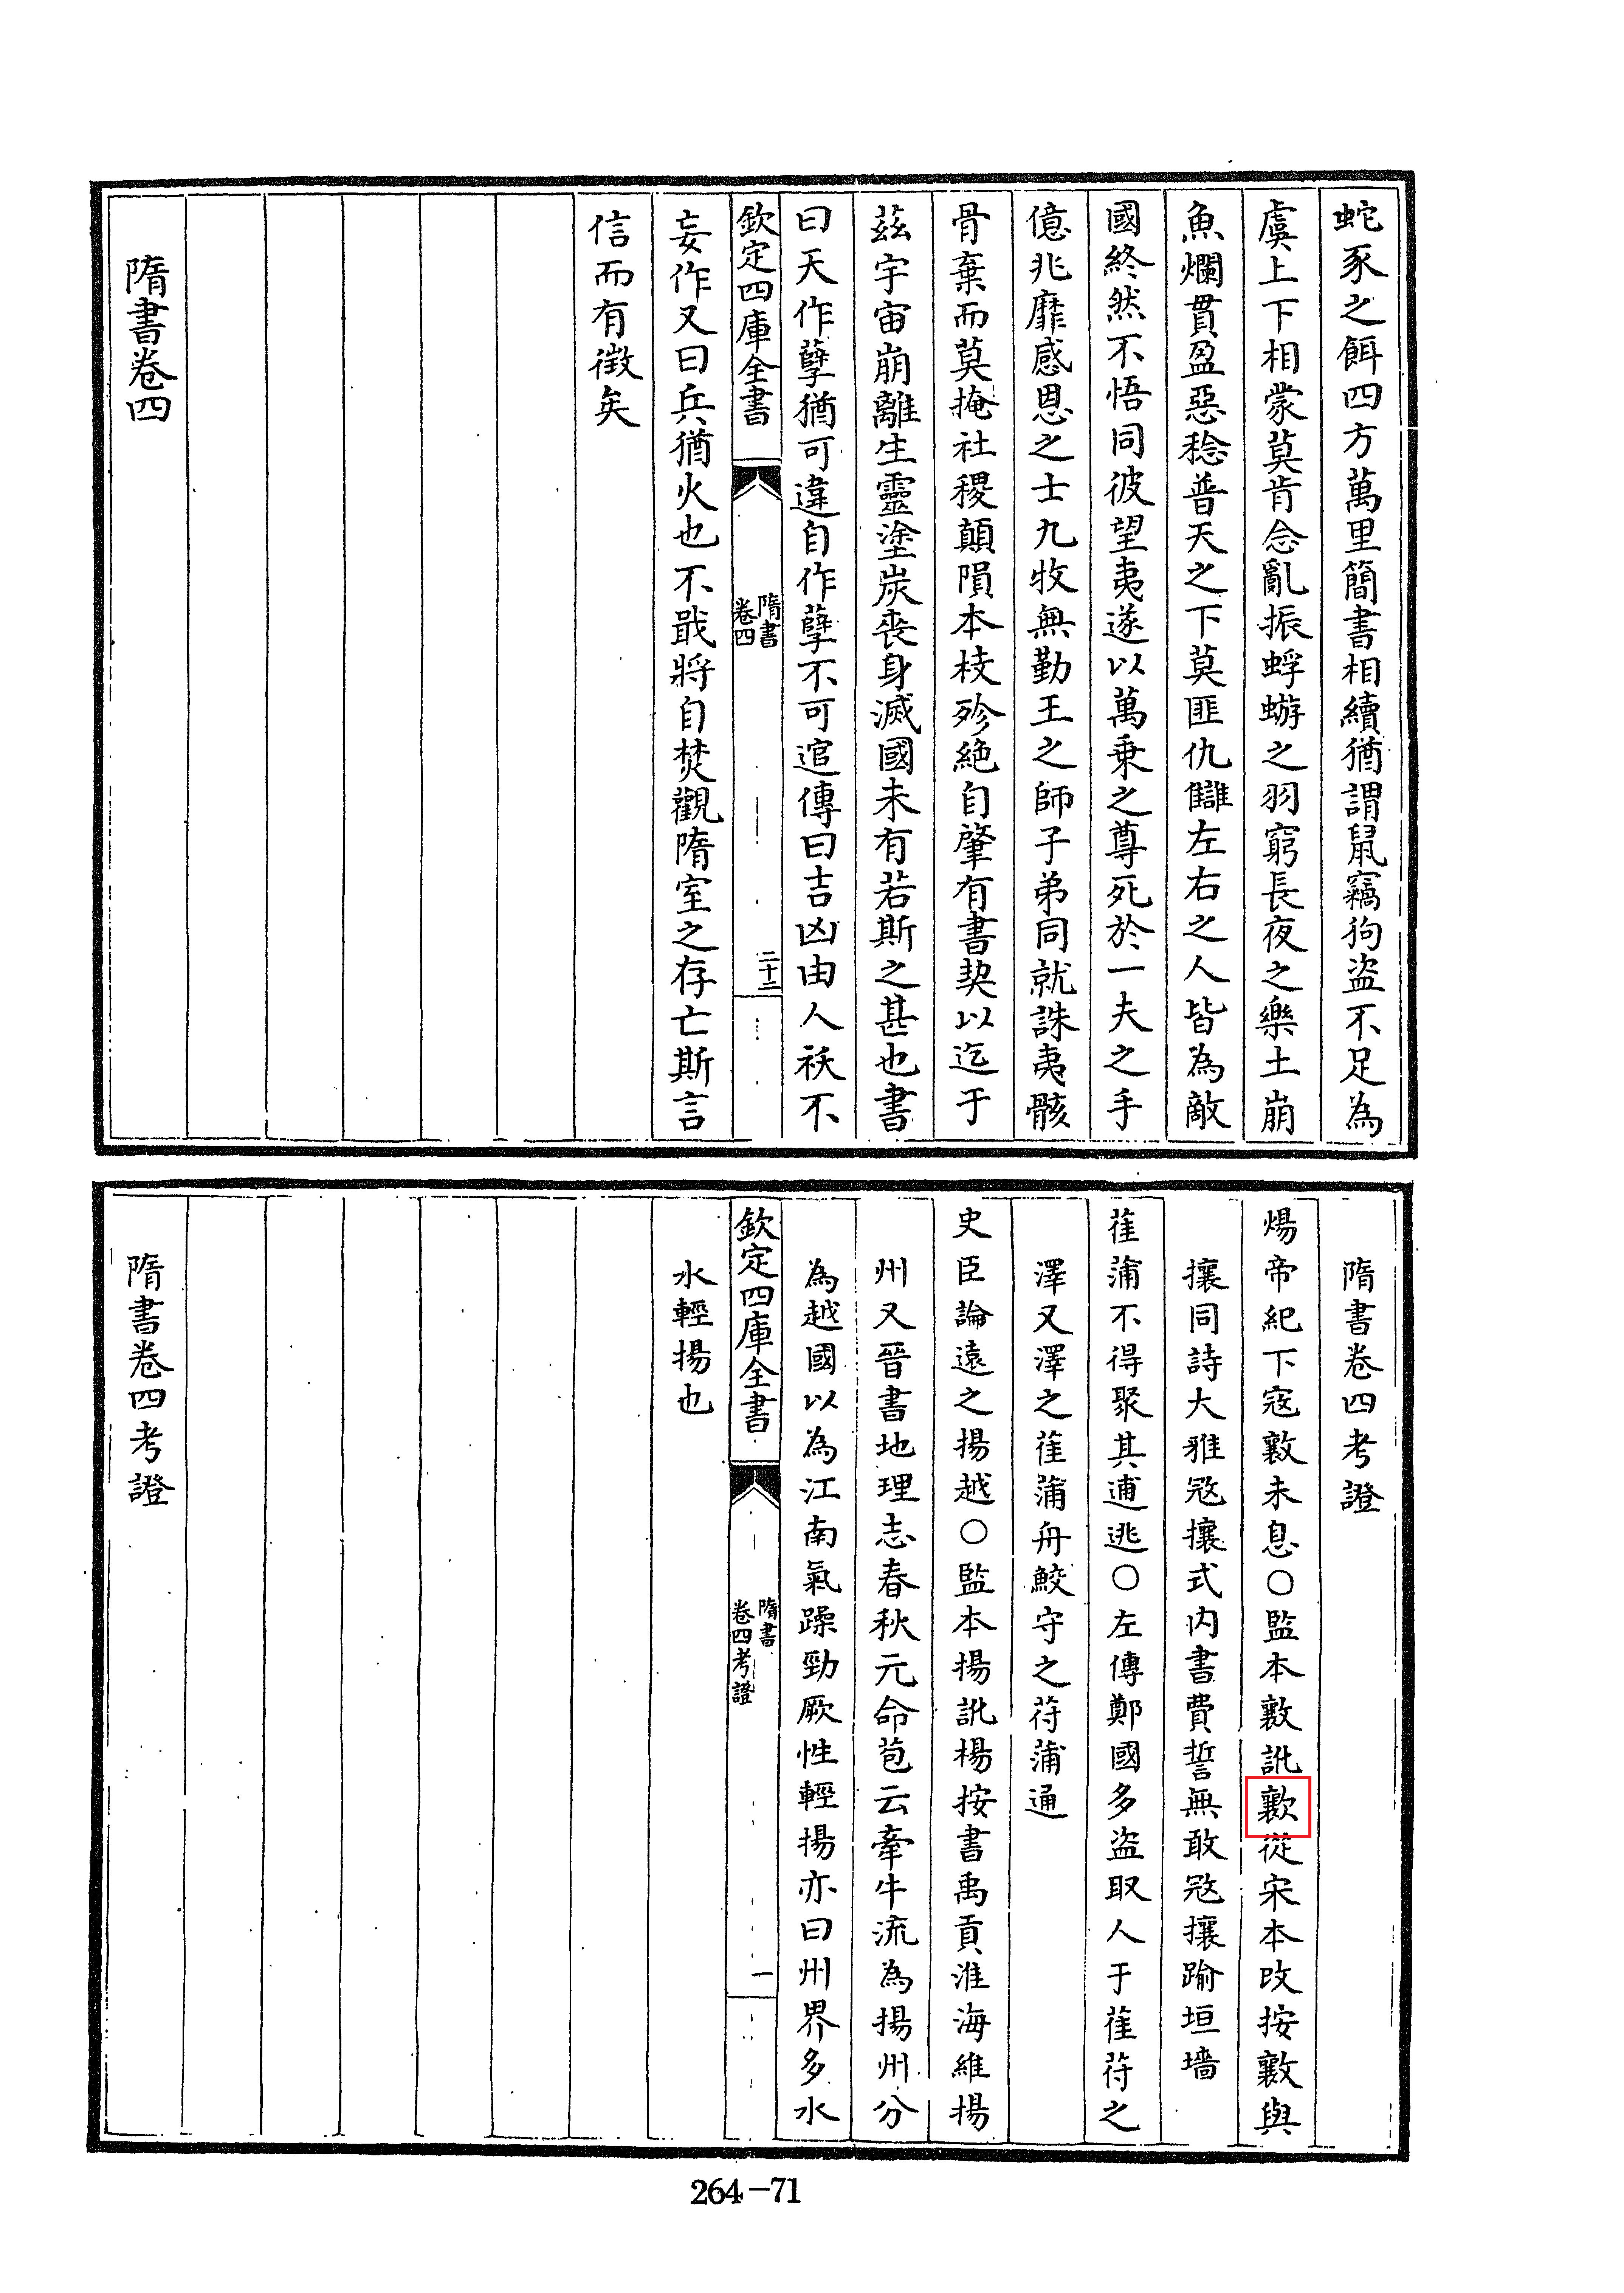 蛇豕之餌四方萬里簡書相續猶謂鼠竊狗盗不足為
虞上下相蒙莫肯念亂振蜉蝣之羽窮長夜之樂土崩
魚爛貫盈惡稔普天之下莫匪仇讎左右之人皆為敵
國終然不悟同彼望夷遂以萬乗之尊死於一夫之手
億兆靡感恩之士九牧無勤王之師子弟同就誅夷骸
骨棄而莫掩社稷顛隕本枝殄絶自肇有書契以迄于
兹宇宙崩離生靈塗炭喪身滅國未有若斯之甚也書
曰天作孽猶可違自作孽不可逭傳曰吉凶由人祅不
欽定四庫全書
隋書
卷四
二十二
妄作又曰兵猶火也不戢將自焚觀隋室之存亡斯言
信而有徴矣
隋書卷四
隋書卷四考證
煬帝紀下寇未息○監本訛從宋本改按與
攘同詩大雅寇攘式内書費誓無敢寇攘踰垣墻
萑蒲不得聚其逋逃○左傳鄭國多盗取人于萑苻之
澤又澤之萑蒲舟鮫守之苻蒲通
史臣論遠之揚越○監本揚訛楊按書禹貢淮海維揚
州又晉書地理志春秋元命苞云牽牛流為揚州分
為越國以為江南氣躁勁厥性輕揚亦曰州界多水
欽定四庫全書
隋書
卷四考證
一
水輕揚也
隋書卷四考證
264-71